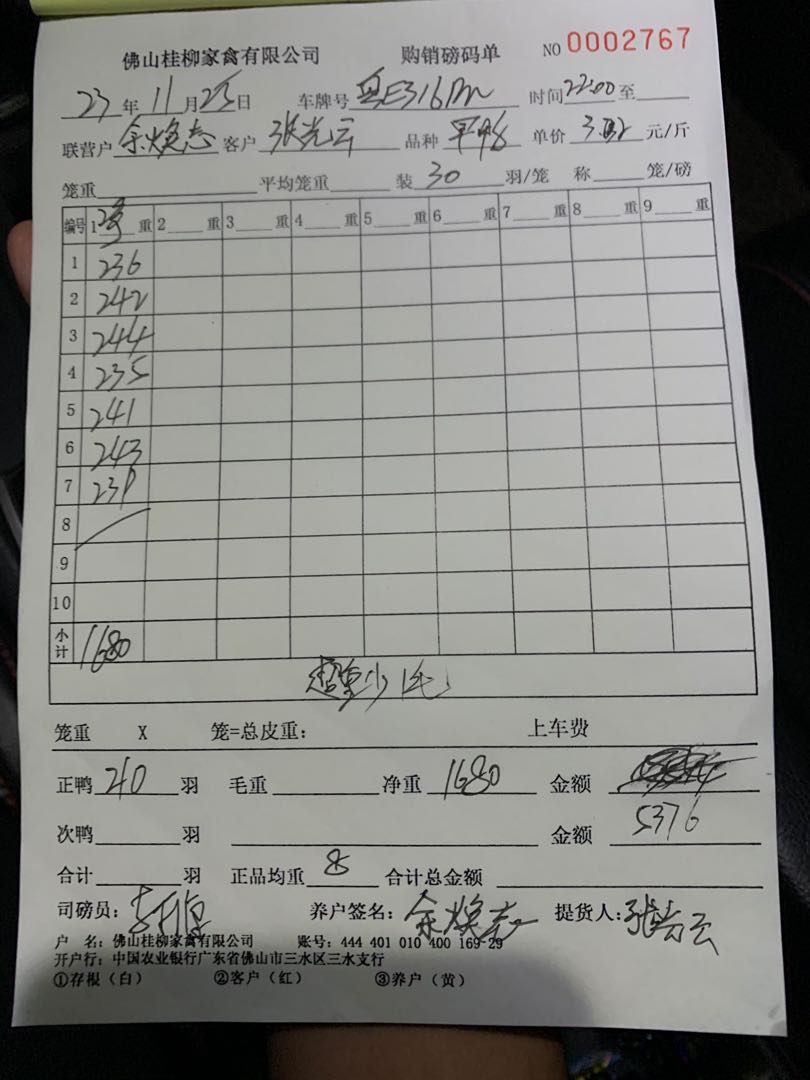 佛山桂柳家禽有限公司 购销磅码单 NO 0002767
23年11月25日 车牌号 粤E316 时间22:00至
联营户 余焕志 客户 张光云 品种 单价 元/斤
笼重 平均笼重 装 30 羽/笼 称 笼/磅
编号 1 重 2 重 3 重 4 重 5 重 6 重 7 重 8 重 9 重
1 236
2 242
3 244
4 235
5 241
6 243
7 239
8
9
10
小计 1680
笼重 X 笼=总皮重： 上车费
正鸭 210 羽 毛重 净重 1680 金额
次鸭 羽 金额 5376
合计 羽 正品均重 8 合计总金额
司磅员： 养户签名：余焕志 提货人：张光云
户 名：佛山桂柳家禽有限公司 账号：444 401 010 400 169-29
开户行：中国农业银行广东省佛山市三水区三水支行
①存根（白） ②客户（红） ③养户（黄）